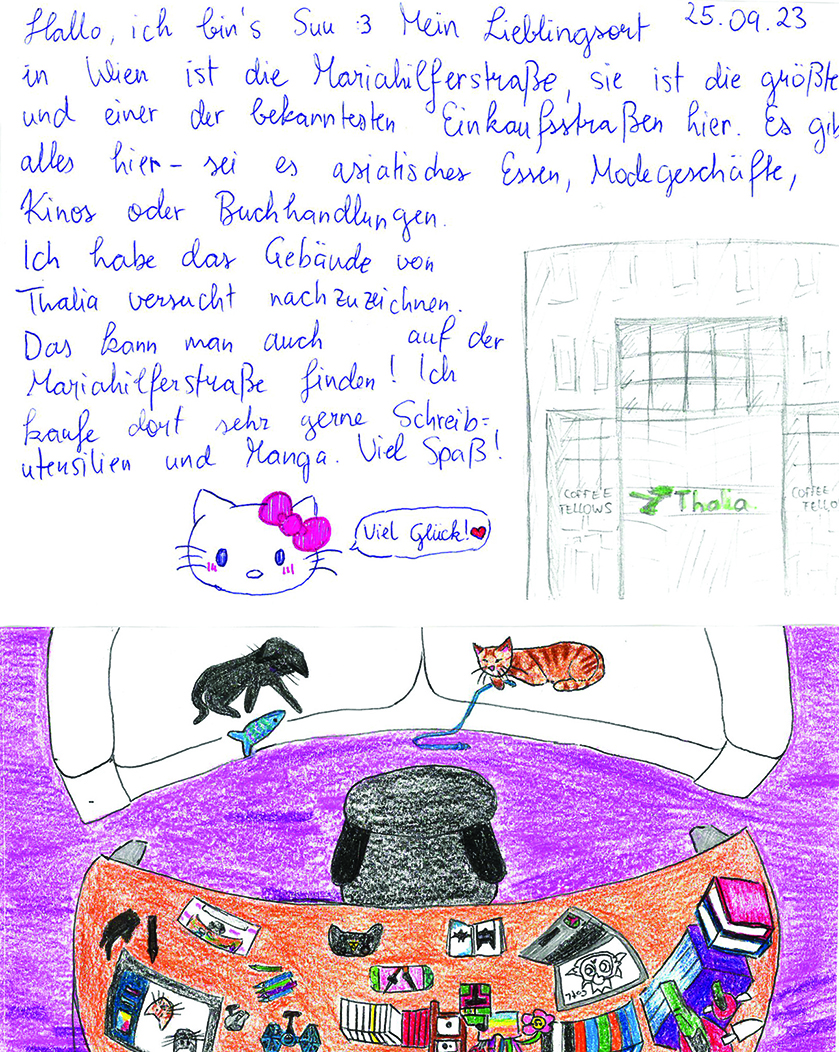 Hallo, ich bin's Suu :3 Mein Lieblingsort 25.09.23
in Wien ist die Mariahilferstraße, sie ist die größte
und einer der bekanntesten Einkaufsstraßen hier. Es gib
alles hier – sei es asiatisches Essen, Modegeschäfte,
Kinos oder Buchhandlungen.
Ich habe das Gebäude von
Thalia versucht nachzuzeichnen.
Das kann man auch auf der
Mariahilferstraße finden! Ich
kaufe dort sehr gerne Schreib=
utensilien und Manga. Viel Spaß!
Viel Glück!
COFFEE
FELLOWS
Thalia
COFFEE
FELLO